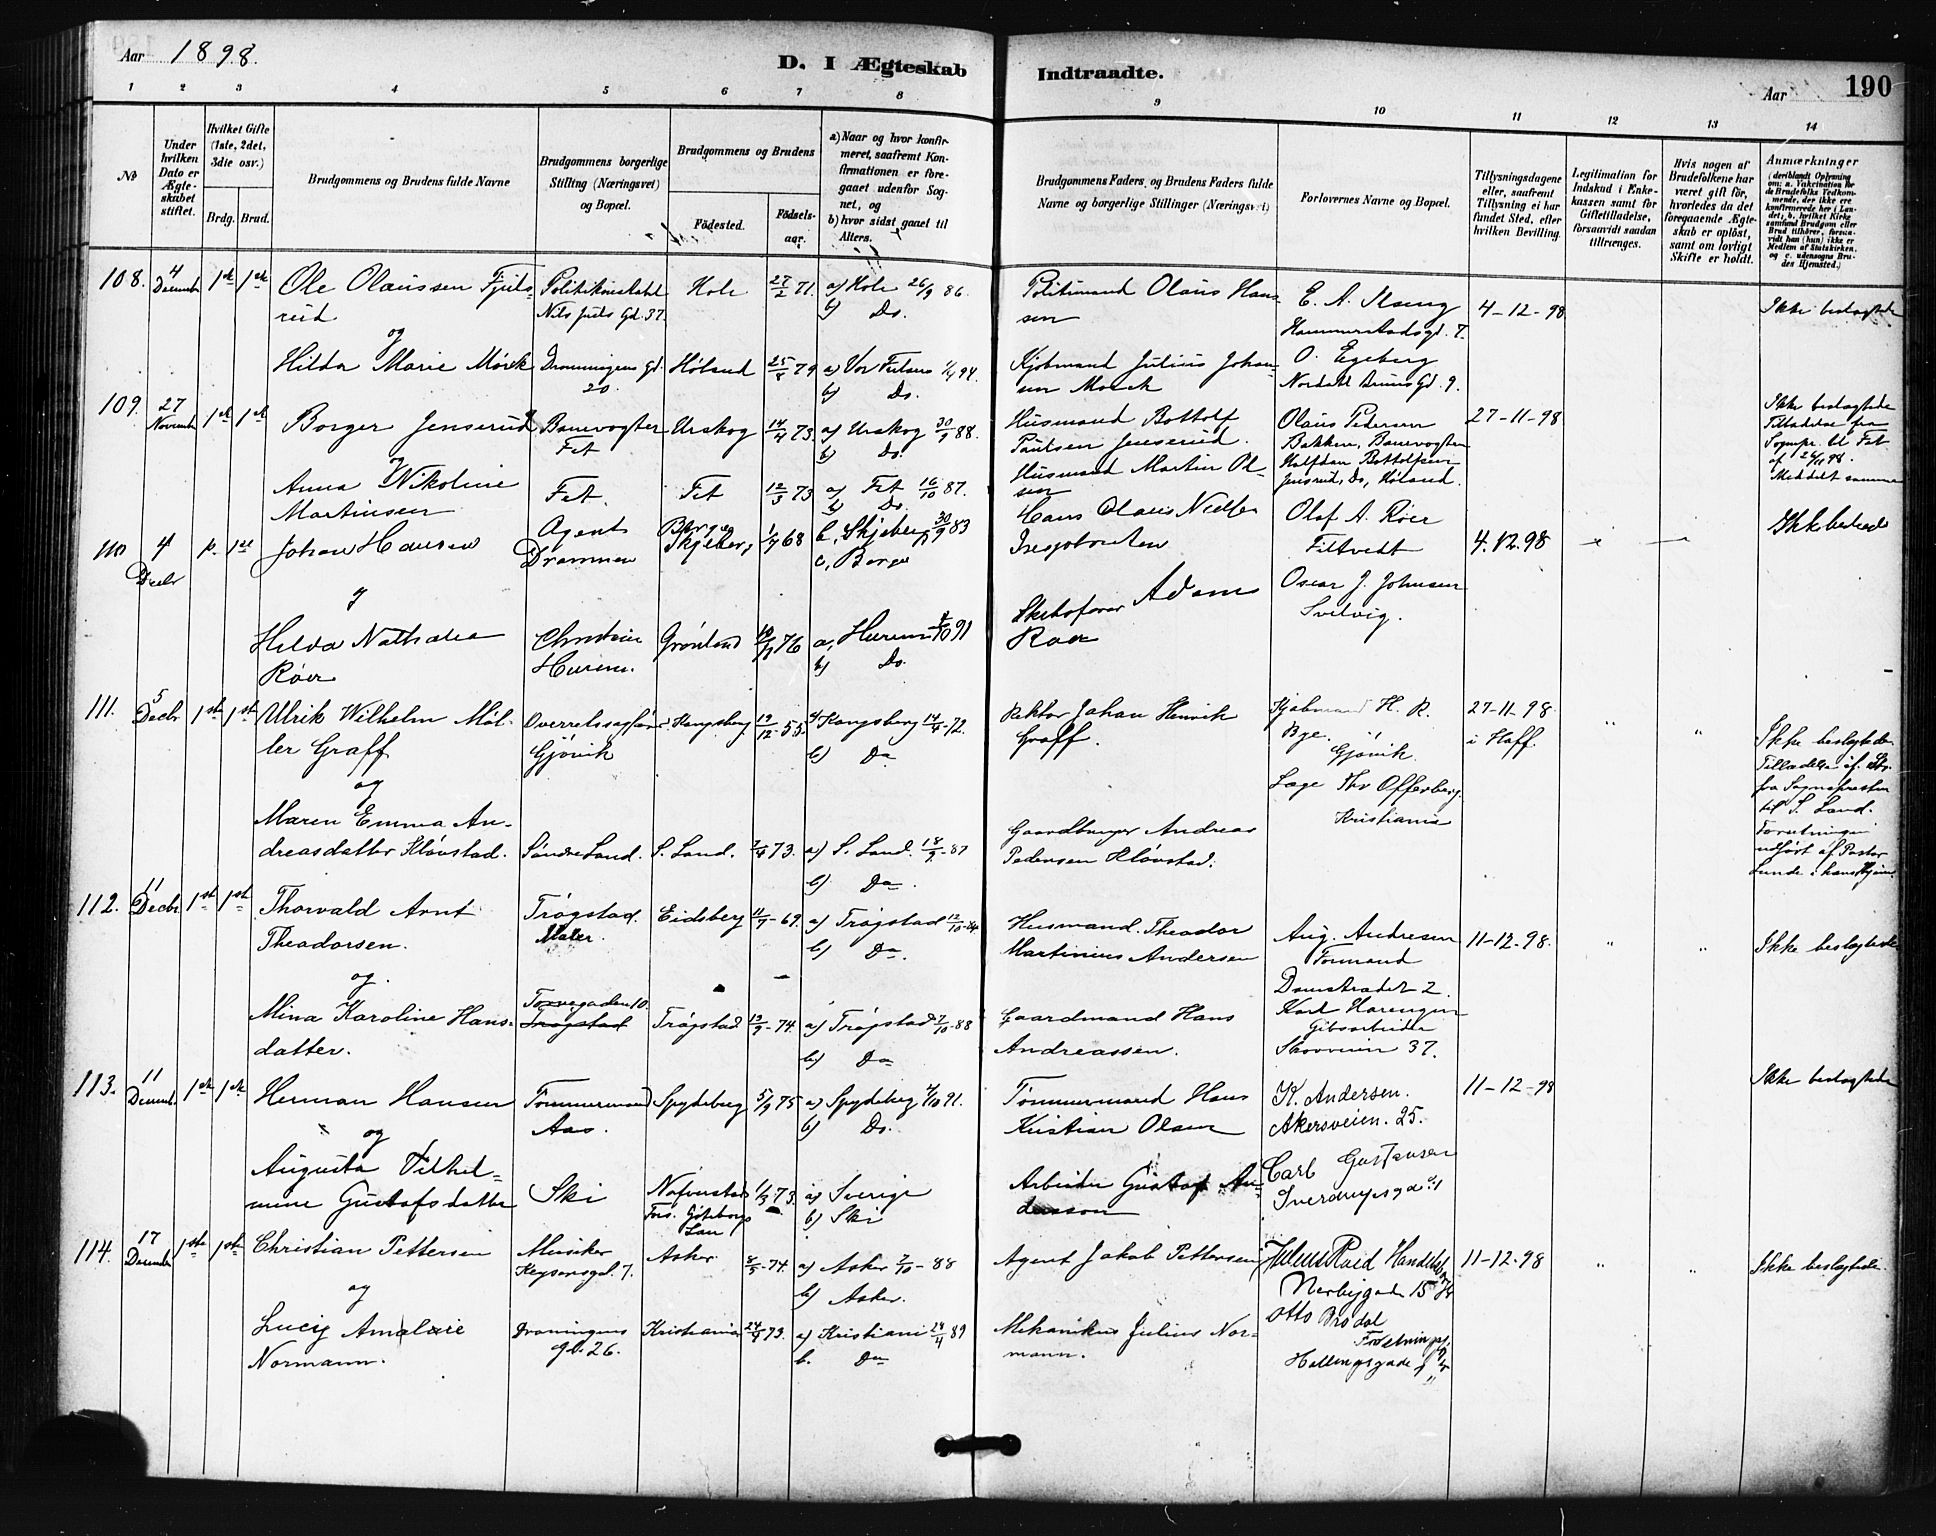 Aar 1898.
D. I Ægteskab Indtraadte.
Aar
190
1 2 3 4 5 6 7 8 9 10 11 12 13 14
No
Under hvilken Dato er Ægteskabet stiftet.
Hvilket Gifte (1ste, 2det, 3die osv.)
Brdg. Brud.
Brudgommens og Brudens fulde Navne
Brudgommens borgerlige Stilling (Næringsvei) og Bopæl.
Brudgommens og Brudens
Fødested.
Fødselsaar.
a) Naar og hvor konfirmeret, saafremt Konfirmationen er foregaaet udenfor Sognet, og
b) hvor sidst gaaet til Alters.
Brudgommens Faders, og Brudens Faders fulde Navne og borgerlige Stillinger (Næringsvei)
Forlovernes Navne og Bopæl.
Tillysningsdagene eller, saafremt Tillysning ei har fundet Sted, efter hvilken Bevilling.
Legitimation for Indskud i Enkekassen samt for Giftetilladelse, forsaavidt saadan tiltrænges.
Hvis nogen af Brudefolkene har været gift før, hvorledes da det foregaaende Ægteskab er opløst, samt om lovligt Skifte er holdt.
Anmærkninger
(deriblandt Oplysning om: a. Vakcination for de Brudefolks Vedkommende, der ikke ere konfirmerede her i Landet, b. hvilket Kirkesamfund Brudgom eller Brud tilhører, forsaavidt han (hun) ikke er Medlem af Statskirken, og c. udensogns Brudes Hjemsted.)
108. 4 Decemb. 1ste 1ste
Ole Olaussen Fjuls-
rud
Nils Juels Gd. 37.
Hole 27/2 71. a) Hole 26/9 86.
b) Do.
Politimand Olaus Han-
sen
Hammerstadsgd. 7.
4-12-98
Ikke beslægtede
og
Hilda Marie Mørck
Dronningens Gd. 20.
Høland 25/8 79 a) Vor Frelsers 94.
b) Do.
Kjøbmand Julius Johan-
sen Mørck
O. Egeberg
Nordahl Bruns Gd. 9.
109. 27 Novemb. 1ste 1ste
Borger Jenserud
Banevogter
Fet
Urskog 14/4 73. a) Urskog 30/9 88.
b) Do.
Husmand Bottolf
Paulsen Jenserud.
Olaus Pedersen
Bakken, Banevogter
Halfdan Bottolfsen
Jenserud, Do, Høland.
27-11-98
Ikke beslægtede
Tilladelse fra
Sognepr. til Fet
af 26/11 98.
Meddelt samme
og
Anna Nikoline
Martinsen
Fet. Fet 12/3 73 a) Fet 16/10 87.
b) Do.
Husmand Martin Ol-
sen
110 4 Decbr 1ste
Johan Hansen
Agent
Drammen
Berge
Skjeberg 68 Skjeberg 30/9 83
Berge
Hans Olaus
Olaf A. Røer
Filtvedt
4.12.98
Ikke beslægtede
og
Hilda Nathalia
Røer
Christine
Hurum.
Grønland 76 a, Hurum 91
b) Do.
Skibsfører Adam
Røer
Oscar J. Johnsen
Svelvig.
111. 5 Decbr 1ste 1ste
Ulrik Wilhelm Møl-
ler Graff
Overretssagfører
Gjøvik
Kongsberg 19/12-55. a) Kongsberg 14/4-72.
b) Do
Rektor Johan Henrik
Graff.
Kjøbmand H. R.
Bye.
Gjøvik.
27-11-98
i Haff.
Ikke beslægtede
fra Sognepresten
til S. Land.
Forretningen
udført af Pastor
Lunde i hans Hjem.
og
Maren Emma An-
dreasdatter Kløvstad.
Søndre Land. S. Land. 2/4 73. a) S. Land. 18/9-87
b) Do.
Gaardbruger Andreas
Pedersen Kløvstad.
Læge Thv Offenberg.
Kristiania
112. 11 Decbr 1ste 1ste
Thorvald Arnt
Theodorsen.
Trøgstad.
Maler.
Eidsberg 11/7-69. a) Trøgstad 12/10-84.
b) Do.
Husmand Theodor
Martinius Andersen
Aug. Andresen
Formand
Damstrædet 2.
11-12-98.
Ikke beslægtede
og
Mina Karoline Hans-
datter.
Torvegaden 10.
Trøgstad
Trøgstad 19/9-74. a) Trøgstad 7/10-88
b) Do
Gaardmand Hans
Andreassen.
Karl Horengen
Gibsarbeider
Skovveien 37.
113. 11 Decemb. 1ste 1ste
Herman Hansen
Tømmermand
Aas.
Spydeberg 5/9 75 a) Spydeberg 4/10 91.
b) Do.
Tømmermand Hans
Kristian Olsen
K. Andersen.
Akersveien. 25.
11-12-98
Ikke beslægtede
og
Augusta Vilhel-
mine Gustafsdatter
Ski
Nafverstad
Fors. Göteborgs
Län
1/3 73. a) Sverige
b) Ski
Arbeider Gustaf An-
dersson
Carl Gustavsen
114. 17 Decemb. 1ste 1ste
Christian Pettersen
Musiker
Keysersgd. 7.
Asker 8/5-74. a) Asker 7/10-88
b) Asker.
Agent Jakob Pettersen
11-12-98
Ikke beslægtede
og
Lucy Amalie
Normann.
Dronningens
gd. 26.
Kristiania 24/9 73. a) Kristiania 24/4 89
b. Do
Mekanikus Julius Nor-
mann.
Otto Brødal